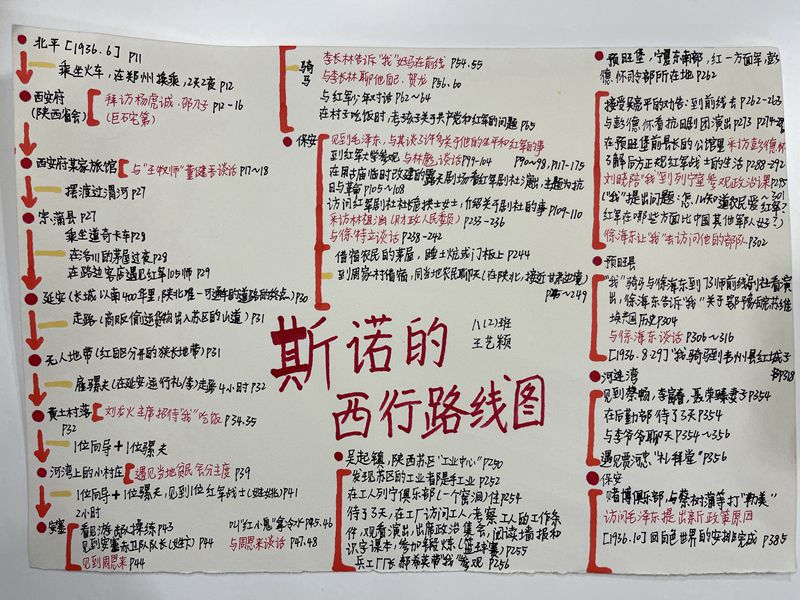 北平[1936.6] P11
乘坐火车,在郑州换乘,2天2夜 P12
西安府
(陕西省会)
拜访杨虎诚、邵力子 P12-16
(巨石宅第)
西安府某家旅馆
与"王牧师"董健吾谈话 P17~18
摆渡过渭河 P27
宗蒲县 P27
乘坐道奇卡车 P28
在洛川的茅屋过夜 P28
在路边客店遇见红军105师 P29
延安(长城以南400年里,陕北唯一可通车的道路 P30
走路(商贩偷运货物出入苏区的小道) P31
无人地带(红白区分开的狭长地带) P31
雇骡夫(在延安运行礼/李)走路4小时 P32
黄土村落
P32
刘龙火主席招待"我"吃饭 P34.35
1位向导+1位骡夫
河湾上的小村庄
遇见当地贫民会分主度 P39
1位向导+1位骡夫,见到1位红军战士(姓姚) P41
2小时
安塞
看见游击队操练 P43
见到安塞赤卫队队长(姓卞) P44
见到周恩来 P44
叫"红小鬼"拿冷水 P45.46
与周恩来谈话 P47.48
骑马
李长林告诉"我"好马在前线 P54.55
与李长林聊他自己、贺龙 P56.60
与红军少年对话 P62~64
在村子吃饭时,老孩子关于共产党和红军的问题 P65
保安
见到毛泽东,与其谈了许多关于他的生平和红军的事
P90~98,P117-175
到红军大学参观,与林彪谈话 P99-104
在用古庙临时改建的露天剧场看红军剧社演出,主题为抗
日与革命 P105~108
访问红军剧社社长危拱士女士,介绍关于剧社的事 P109-110
采访林祖涵(财政人民委员) P233-236
与徐特立谈话 P238-242
借宿农民的茅屋,睡土炕或门板上 P244
到周家村借宿,同当地农民聊天(在陕北,接近甘肃边境)
~249
斯诺的
西行路线图
八(2)班
王艺颖
吴起镇,陕西苏区"工业中心" P250
发现苏区的工业者是手工业 P252
在工人列宁俱乐部(一个窑洞)住 P254
待了3天,在工厂访问工人,考察工人的工作条
件,观看演出,出席政治集会,阅读墙报和
识字课本,参加锻炼(篮球赛) P255
兵工厂厂长郝希英带"我"参观 P256
预旺堡,宁夏东南部,红一方面军,彭
德怀司令部所在地 P262
接受吴亮平的劝告:到前线去 P262-263
与彭德怀看抗日剧团演出 P273
在预旺堡前县长的公馆里采访彭德怀
了解后方正规红军战士的生活 P288-292
刘晓陪"我"到列宁室参观政治课 P295
("我"提出问题:怎
红军在哪些方面比中国其他军队好?)
徐海东让"我"去访问他的部队 P302
预旺县
"我"骑马与徐海东到73师前线剧社看演
出,徐海东告诉"我"关于鄂豫皖苏维
埃共和国历史 P304
与徐海东谈话 P306~316
[1936.8.29]"我"骑马到韦州县红城子
河连湾
见到蔡畅,李富春,聂荣臻妻子 P354
在后勤部待了3天 P354
与李爷爷聊天 P354~P356
遇见贾河忠"礼拜堂" P356
保安
赌博俱乐部,与蔡树藩等打"勒美"
访问毛泽东提出新政策原因
[1936.10]回白色世界的安排完成 P385